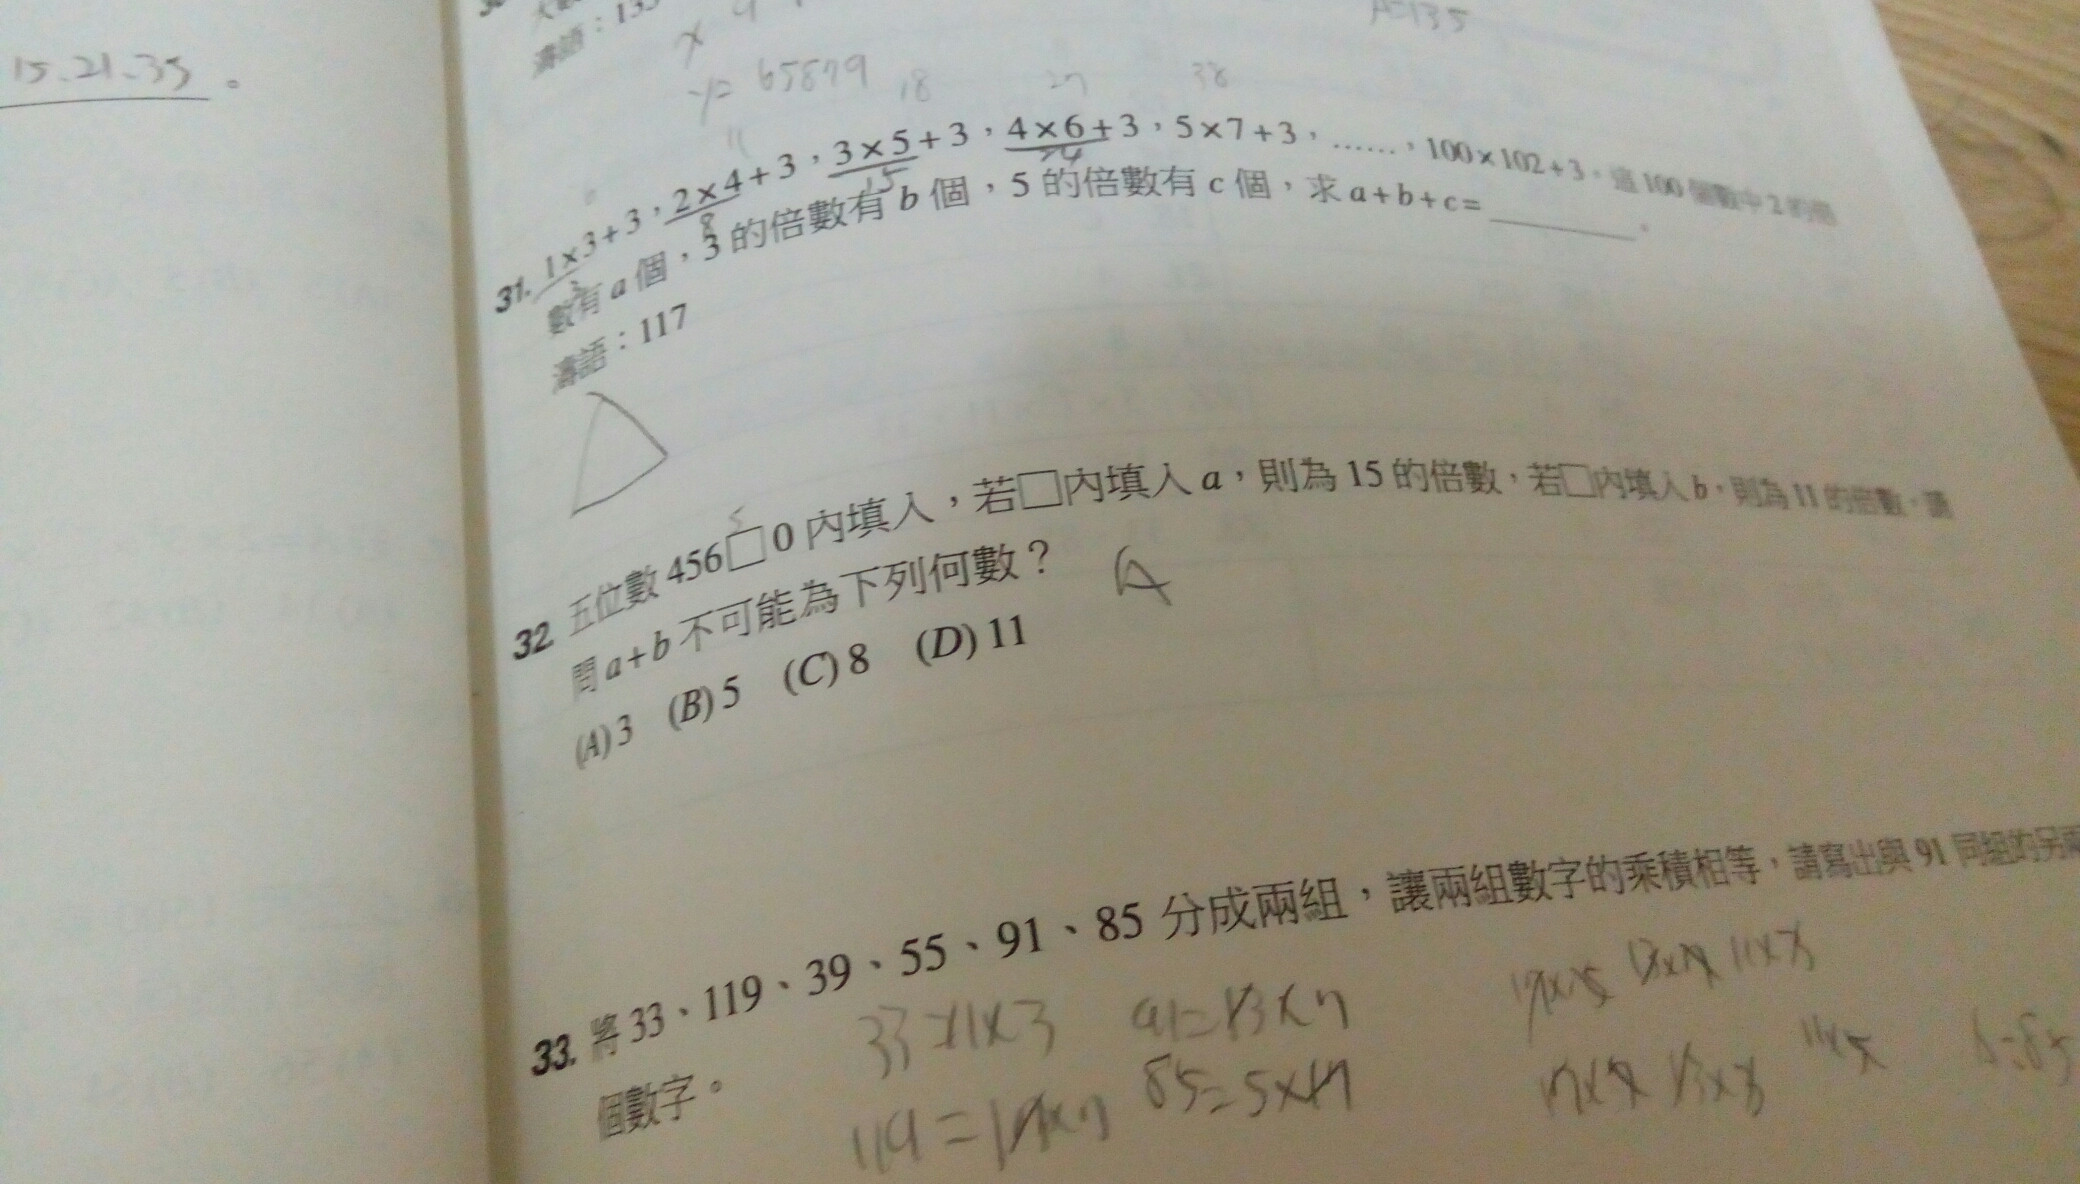 15.21.35。
濤語：135
y= 65879
18
27
38
11
31. 1×3+3，2×4+3，3×5+3，4×6+3，5×7+3，……，100×102+3，這100個數中2的倍
3
8
15
24
數有a個，3的倍數有b個，5的倍數有c個，求a+b+c=______.
濤語：117
32. 五位數456□0內填入，若□內填入a，則為15的倍數，若□內填入b，則為11的倍數，請
5
問a+b不可能為下列何數？
A
(A)3 (B)5 (C)8 (D)11
33. 將33、119、39、55、91、85分成兩組，讓兩組數字的乘積相等，請寫出與91同組的另兩
個數字。
33=11×3 91=13×7
119=17×7 85=5×17
17×5 13×7 11×3
17×7 13×3 11×5